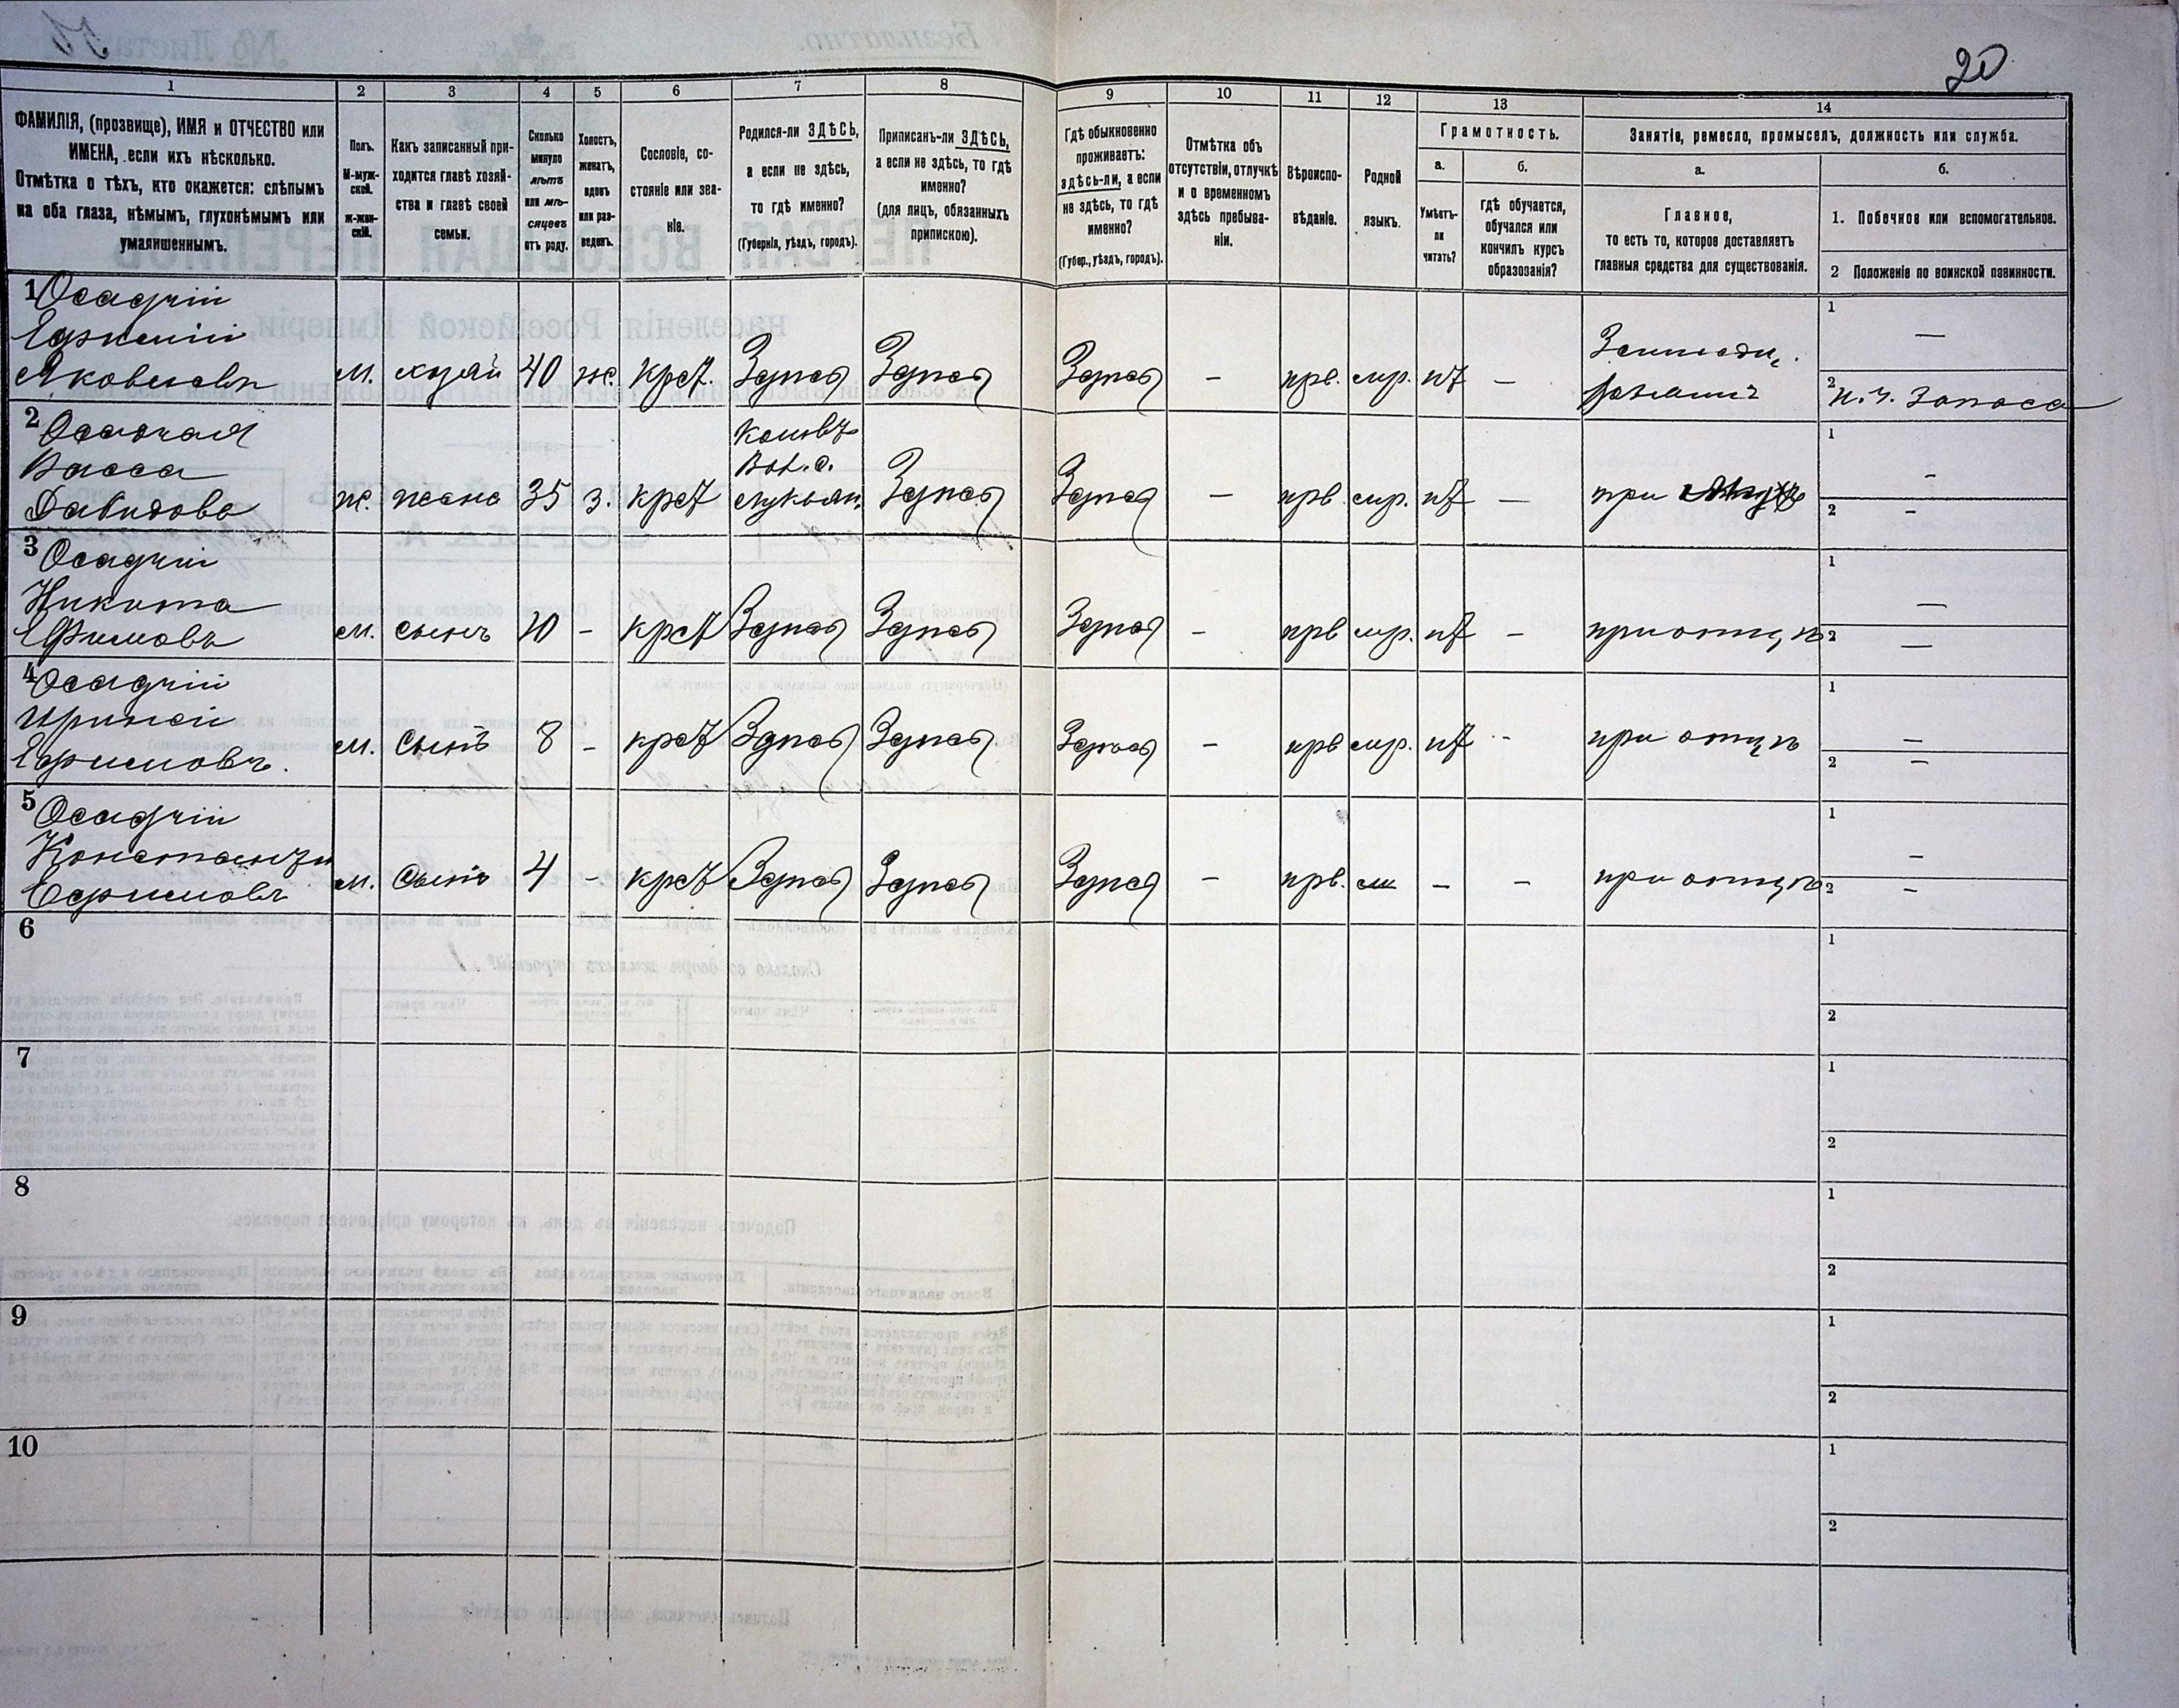 20
1 2 3 4 5 6 7 8 9 10 11 12 13 14
ФАМИЛІЯ, (прозвище), ИМЯ и ОТЧЕСТВО или
ИМЕНА, если ихъ нѣсколько.
Отмѣтка о тѣхъ, кто окажется: слѣпымъ
на оба глаза, нѣмымъ, глухонѣмымъ или
умалишеннымъ.
Полъ.
М-муж-
ской.
ж-жен-
скій.
Какъ записанный при-
ходится главѣ хозяй-
ства и главѣ своей
семьи.
Сколько
минуло
лѣтъ
или мѣ-
сяцевъ
отъ роду.
Холостъ,
женатъ,
вдовъ
или раз-
веденъ.
Сословіе, со-
стояніе или зва-
ніе.
Родился-ли ЗДѢСЬ,
а если не здѣсь,
то гдѣ именно?
(Губернія, уѣздъ, городъ).
Приписанъ-ли ЗДѢСЬ,
а если не здѣсь, то гдѣ
именно?
(для лицъ, обязанныхъ
припискою).
Гдѣ обыкновенно
проживаетъ:
здѣсь-ли, а если
не здѣсь, то гдѣ
именно?
(Губер., уѣздъ, городъ).
Отмѣтка объ
отсутствіи, отлучкѣ
и о временномъ
здѣсь пребыва-
ніи.
Вѣроиспо-
вѣданіе.
Родной
языкъ.
Грамотность.
а.
Умѣетъ-
ли
читать?
б.
гдѣ обучается,
обучался или
кончилъ курсъ
образованія?
Занятіе, ремесло, промыселъ, должность или служба.
а.
Главное,
то есть то, которое доставляетъ
главныя средства для существованія.
б.
1. Побочное или вспомогательное.
2 Положеніе по воинской повинности.
1 Осадчій
Ефимій
Яковлевъ м. хозяи 40 ж. крст. Здѣсь Здѣсь Здѣсь – прв. мр. нт –
1 —
2 н. ч. Запаса
2 Осадчая
Васса
Давидова ж. жена 35 з. крст
Вол. с.
Здѣсь Здѣсь – прв. мр. нт – при мужѣ
1 -
2 -
3 Осадчій
Никита
Ефимовъ м. сынъ 10 - крст Здѣсь Здѣсь Здѣсь – прв мр. нт – при отцѣ
1 —
2 —
4 Осадчій
Ириней
Ефимовъ. м. Сынъ 8 - крст Здѣсь Здѣсь Здѣсь – прв мр. нт - при отцѣ
1 —
2 —
5 Осадчій
Ефимовъ м. Сынъ 4 - крст Здѣсь Здѣсь Здѣсь – прв. – – при отцѣ
1 –
2 –
6
1
2
7
1
2
8
1
2
9
1
2
10
1
2